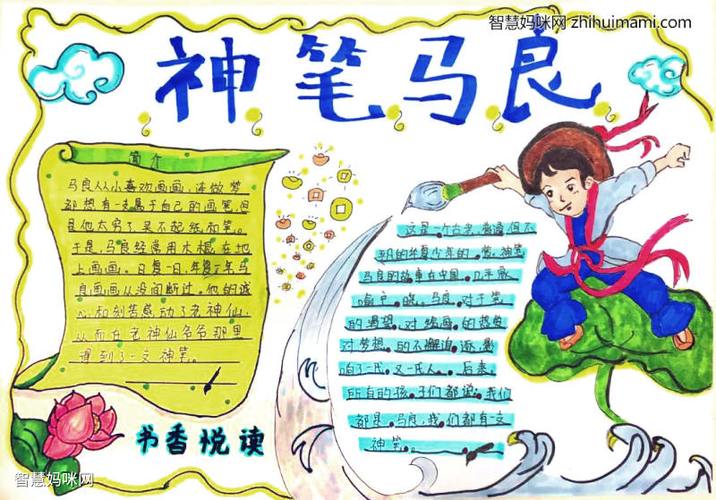 智慧妈咪网 zhihuimami.com
神笔马良
简介
马良从小喜欢画画,连做梦
都想有一支属于自己的画笔,但
是他太穷了买不起纸和笔。
于是,马良经常用木棍在地
上画画。日复一日,年复一年马
良画画从没间断过。他的诚
心和刻苦感动了老神仙,
从而在老神仙爷爷那里
得到了一支神笔。
这是一个古老,普通但不
平凡的华夏少年的梦,神笔
马良的故事在中国,几乎家
喻户晓,马良,对于笔
的渴望,对绘画的热爱
对梦想,的不懈追逐,影
响了一代,又一代人。后来,
所有的孩子们都说:我们
都是马良,我们都有一支
神笔。
书香悦读
智慧妈咪网